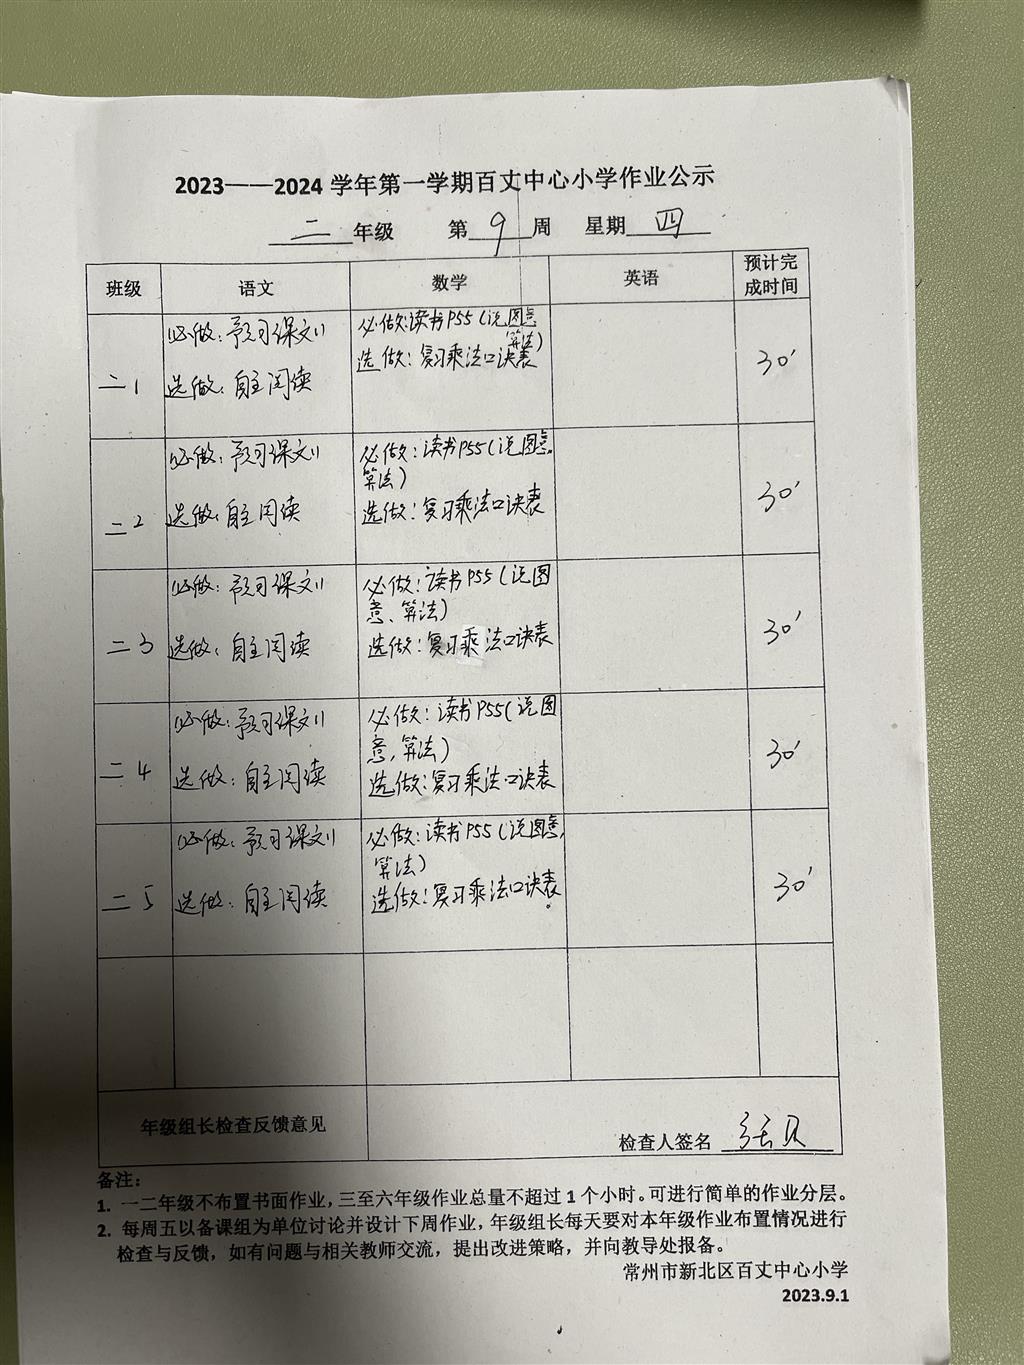 2023——2024 学年第一学期百丈中心小学作业公示
二 年级 第 9 周 星期 四
班级 语文 数学 英语 预计完成时间
二1
必做：预习课文11
选做：自主阅读
必做：读书P55（说图意
算法）
选做：复习乘法口诀表
30'
二2
必做：预习课文11
选做：自主阅读
必做：读书P55（说图意，
算法）
选做：复习乘法口诀表
30'
二3
必做：预习课文11
选做：自主阅读
必做：读书P55（说图
意、算法）
选做：复习乘法口诀表
30'
二4
必做：预习课文11
选做：自主阅读
必做：读书P55（说图
意，算法）
选做：复习乘法口诀表
30'
二5
必做：预习课文11
选做：自主阅读
必做：读书P55（说图意，
算法）
选做：复习乘法口诀表。
30'
年级组长检查反馈意见
检查人签名 张贝
备注：
1. 一二年级不布置书面作业，三至六年级作业总量不超过 1 个小时。可进行简单的作业分层。
2. 每周五以备课组为单位讨论并设计下周作业，年级组长每天要对本年级作业布置情况进行
检查与反馈，如有问题与相关教师交流，提出改进策略，并向教导处报备。
常州市新北区百丈中心小学
2023.9.1